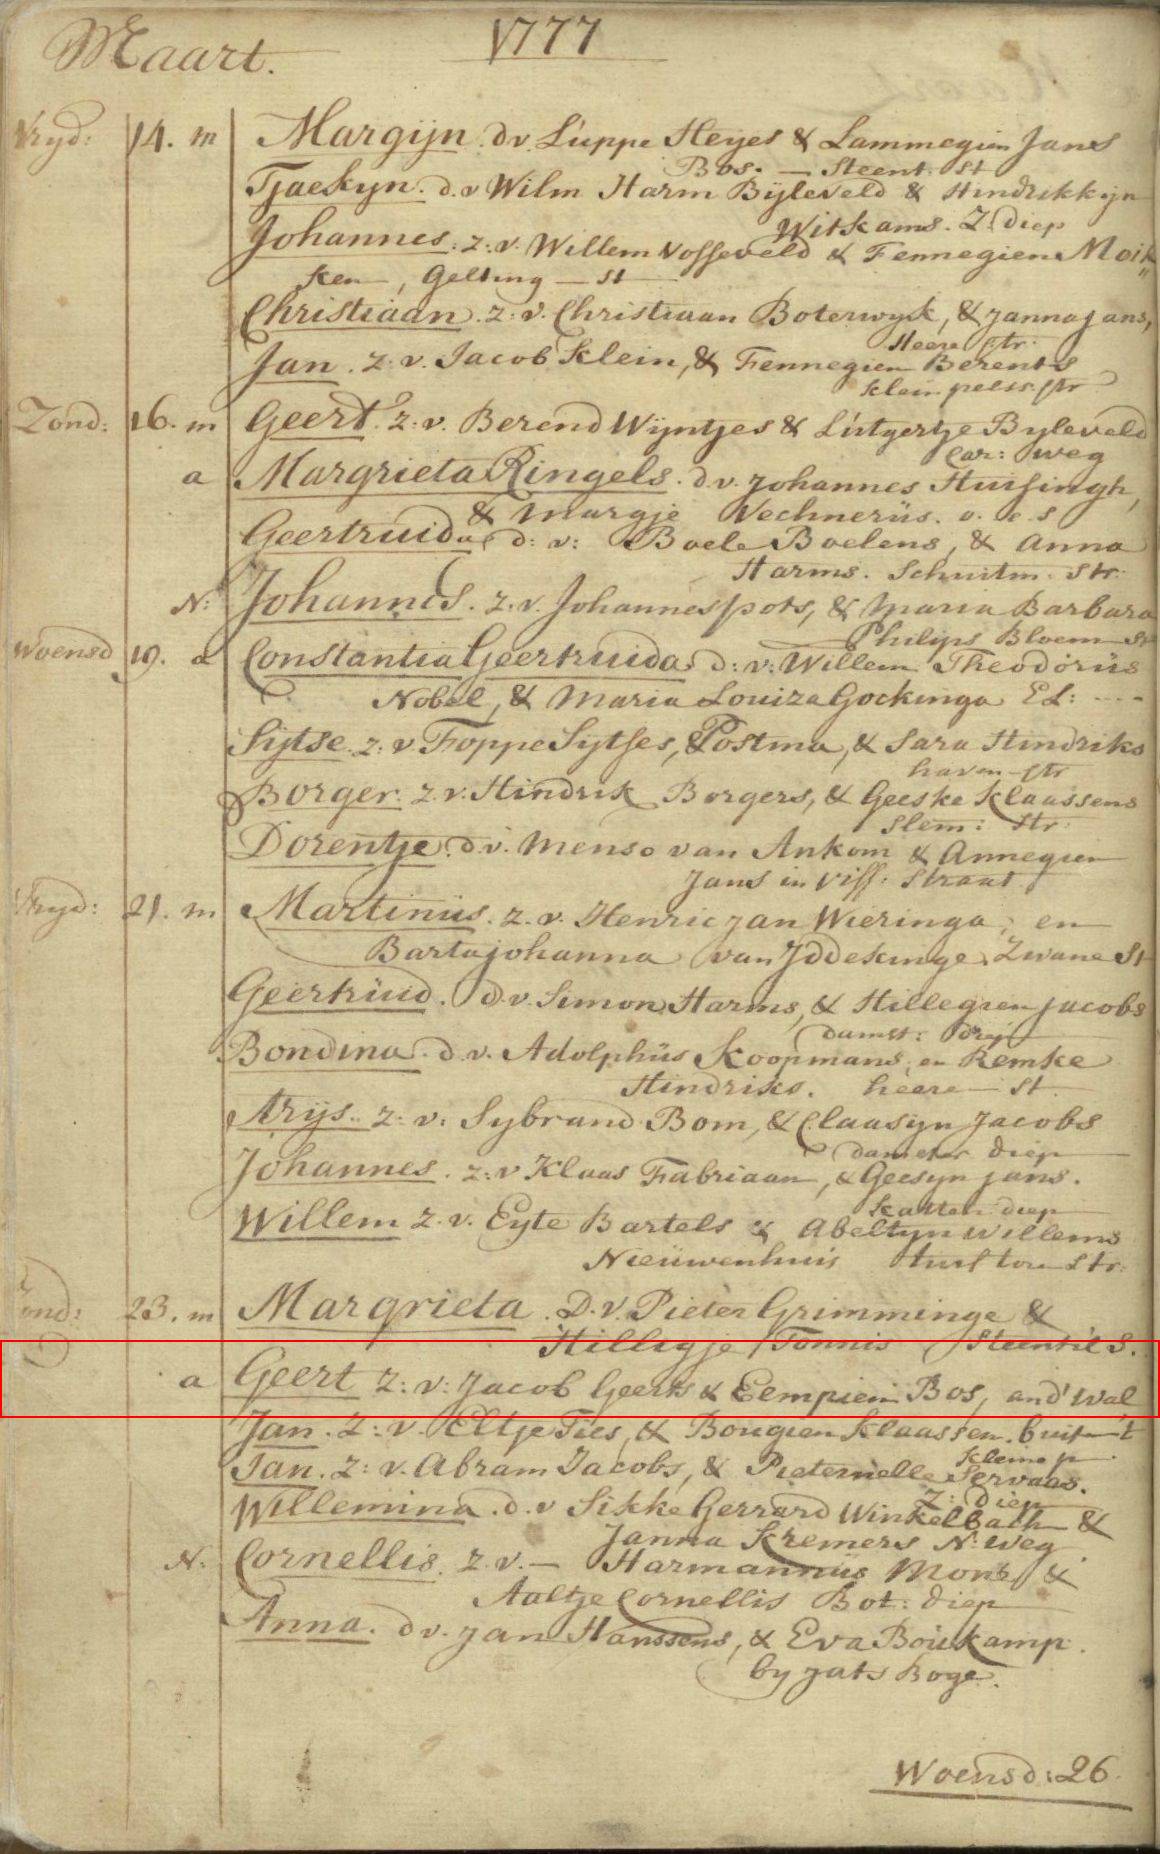 Maart. 1777
Vryd: 14. m Margijn. d v. Luppe Heyes & Lammegien Jans
Bos. — Steent. St
Tjaekyn. d. v Wilm Harm Byleveld & Hindrikkijn
Witkams. Z: diep
Johannes. z: v. Willem Vosseveld & Fennegien Moik
ken, Gelting — St
Christiaan. z: v. Christiaan Boterwyk, & Janna Jans,
Heere str.
Jan. z. v. Jacob Klein, & Fennegien Berents
Klein pelss: str
Zond: 16. m Geert. z: v. Berend Wijntjes & Lutgertje Byleveld
Car: weg
a Margrieta Ringels. d v. Johannes Huisingh,
& Margje Vechnerus. o. e. s
Geertruida, d: v: Boele Boelens, & Anna
Harms. Schuitm. Str.
N: Johannes. z. v. Johannes Pots, & Maria Barbara
Philips Bloem St
Woensd 19. a Constantia Geertruida. d: v: Willem Theodorus
Nobel, & Maria Louiza Gockinga EL: ----
Sijtse. z: v Foppe Sytses, Postma, & Sara Hindriks
haven - str
Borger. z. v. Hindrik Borgers, & Geeske Klaassens
Slem: Str.
Dorentje. d v. Menso van Ankom & Annegien
Jans in Viss. Straat
Vryd: 21. m Martinus. z. v. Henric Jan Wieringa, en
Barta Johanna van Iddekinge. Zwane St
Geertruid. d. v. Simon Harms, & Hillegien Jacobs
damst: drift
Bondina. d v. Adolphus Koopmans, en Remke
Hindriks. heere - St.
Arijs. z: v. Sybrand Bom, & Claasyn Jacobs
damster diep
Johannes. z: v Klaas Fabriaan, & Geesyn Jans.
Katten diep
Willem z. v. Eyte Bartels & Abeltyn Willems
Nieuwenhuis turftorn Str.
Zond: 23. m Margrieta. D. V. Pieter Grimminge &
Hilligje Tonnis Steentil S.
a Geert z: v: Jacob Geerts & Eempien Bos, and' Wal
Jan. z: v. Eltje Ties, & Bougien Klaassen. buit
Kleine p
Jan. z: v. Abram Jacobs, & Pieternelle Servaas.
Z: diep
Willemina. d. v Sikke Gerrard Winkelbach &
Janna Kremers N: Weg
N. Cornellis. z. v. — Harmannus Mont &
Aaltje Cornellis Bot: diep
Anna. d v. Jan Hanssens, & Eva Boukamp.
by Jats Boge.
Woensd: 26